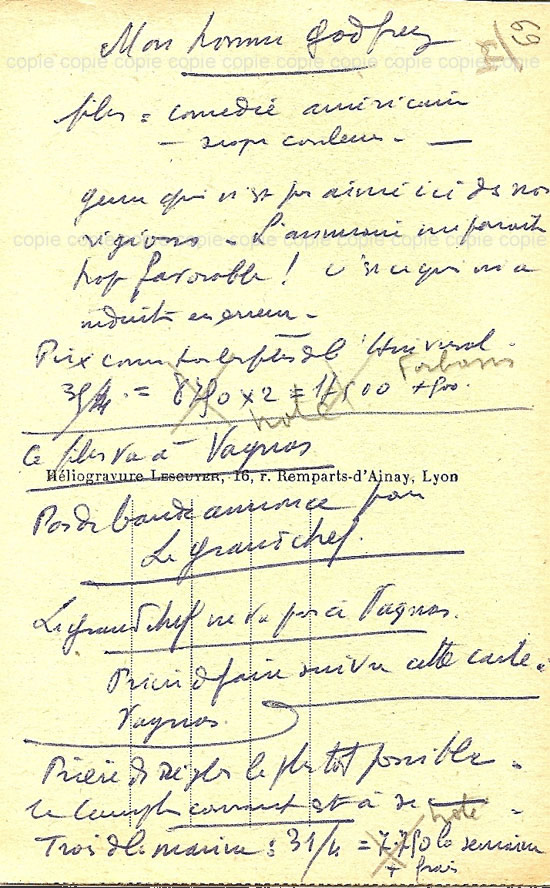 Mon homme Godfrey
69
copie copie copie copie copie copie copie copie copie copie
film = comédie américaine
- couleur -
genre qui n'est pas aimé ici de nos
copie copie copie copie copie copie copie copie copie copie
régions - L'assurance me paraît
trop favorable ! c'est ce qui m'a
induit en erreur -
Prix comme tous les films de l'Universal -
= 8750 x 2 = 17500 + frs.
Forbans
noté
Ce film va à Vagnas
Héliogravure LESCUYER, 16, r. Remparts-d'Ainay, Lyon
Pas de bande annonce pour
Le grand chef.
Le grand chef ne va pas à Vagnas.
Prière de faire suivre cette carte à
Vagnas.
Prière de régler le plus tôt possible -
le compte courant est à
noté
Trois de la marine : 31/4 = 7.750 la semaine
+ frais